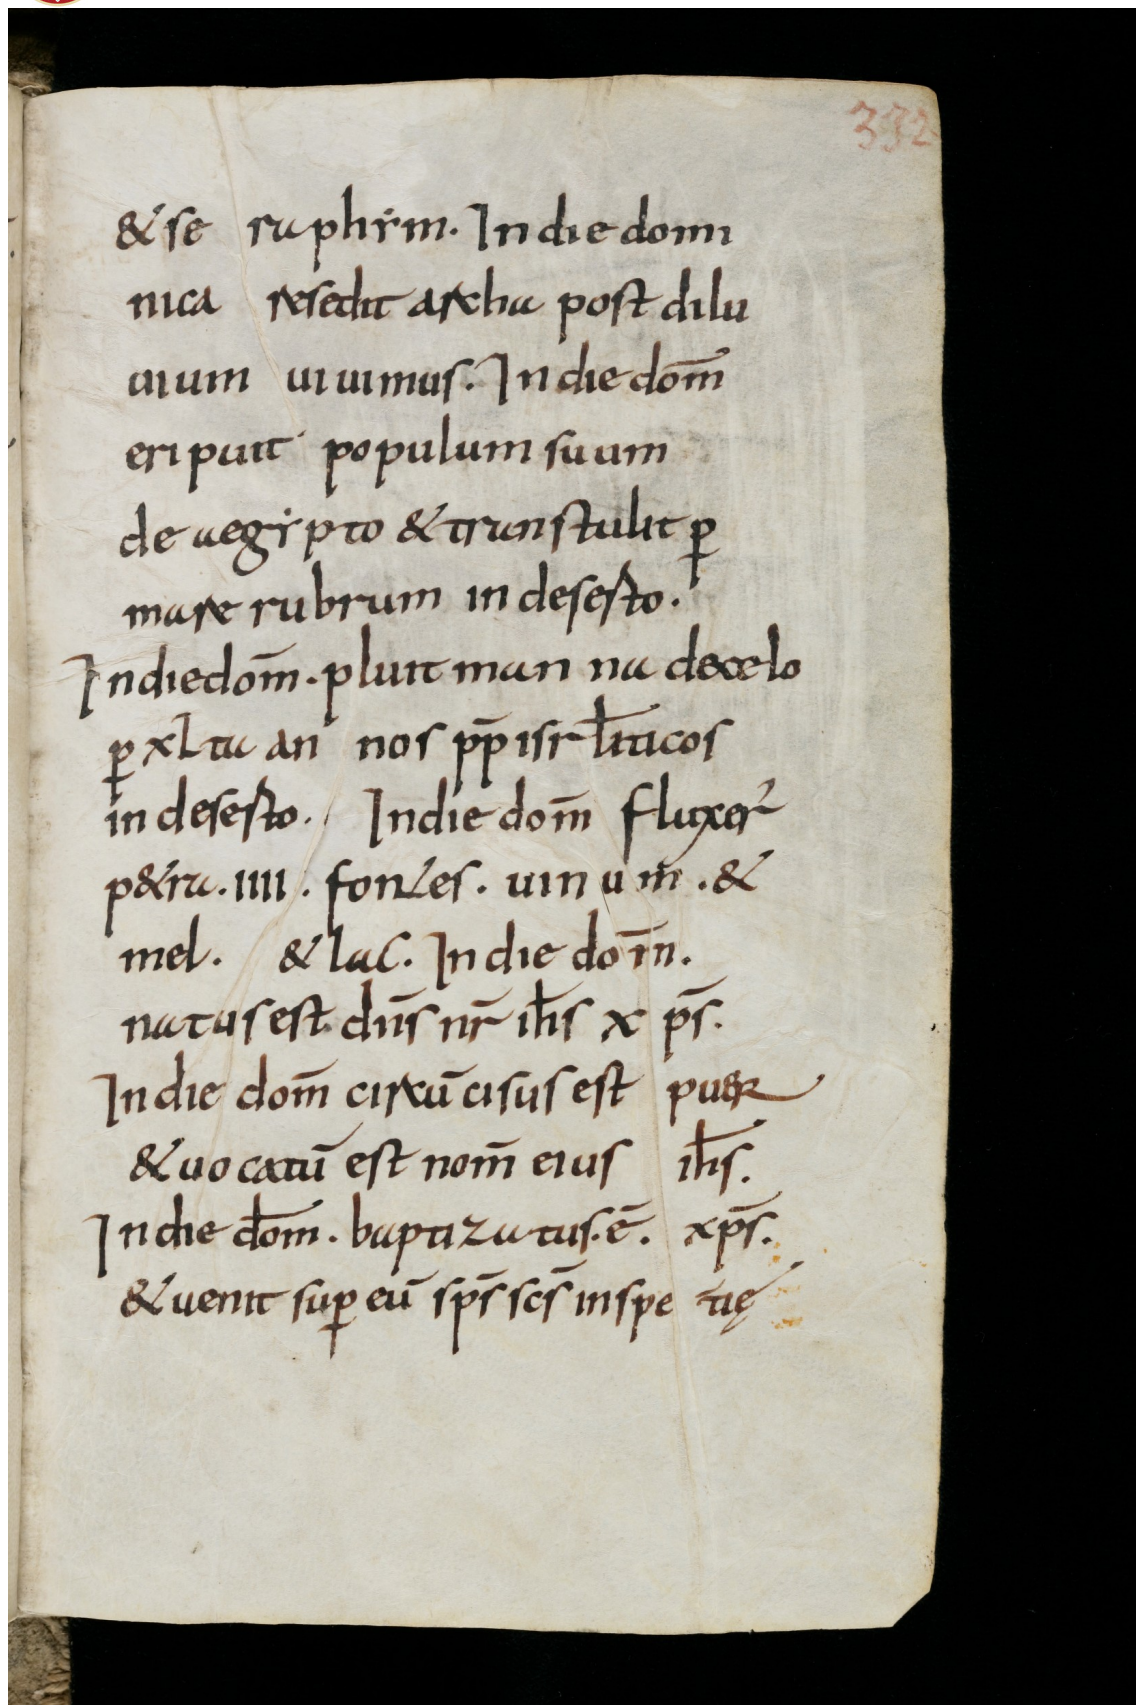 332
& se raphẏm. In die domi
nica resedit archa post dilu
uium uiuimus. In die dom̄
eripuit populum suum
de aegẏpto & transtulit ꝑ
mare rubrum in deserto.
In die dom̄. pluit man na de celo
ꝑ xl ta an nos pp̄ isrl̄iticos
in deserto. In die dom̄ fluxer̄
p&ra. IIII. fontes. uinum̄. &
mel. & lac. In die dom̄.
natus est dn̄s nr̄ ih̄s xp̄s.
In die dom̄ circū cisus est puer
& uocatū est nom̄ eius ih̄s.
In die dom̄. baptizatus. ē. xp̄s.
& uenit suꝑ eū sp̄s sc̄s in spe tię